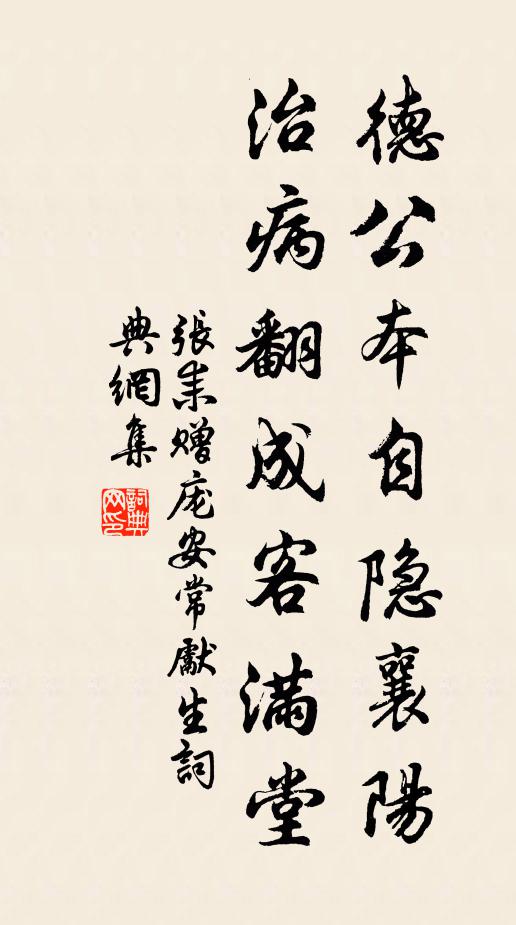 德公本自隐襄陽
治病翻成客滿堂
張耒贈庞安常獻生詞
典網集
詞典网印